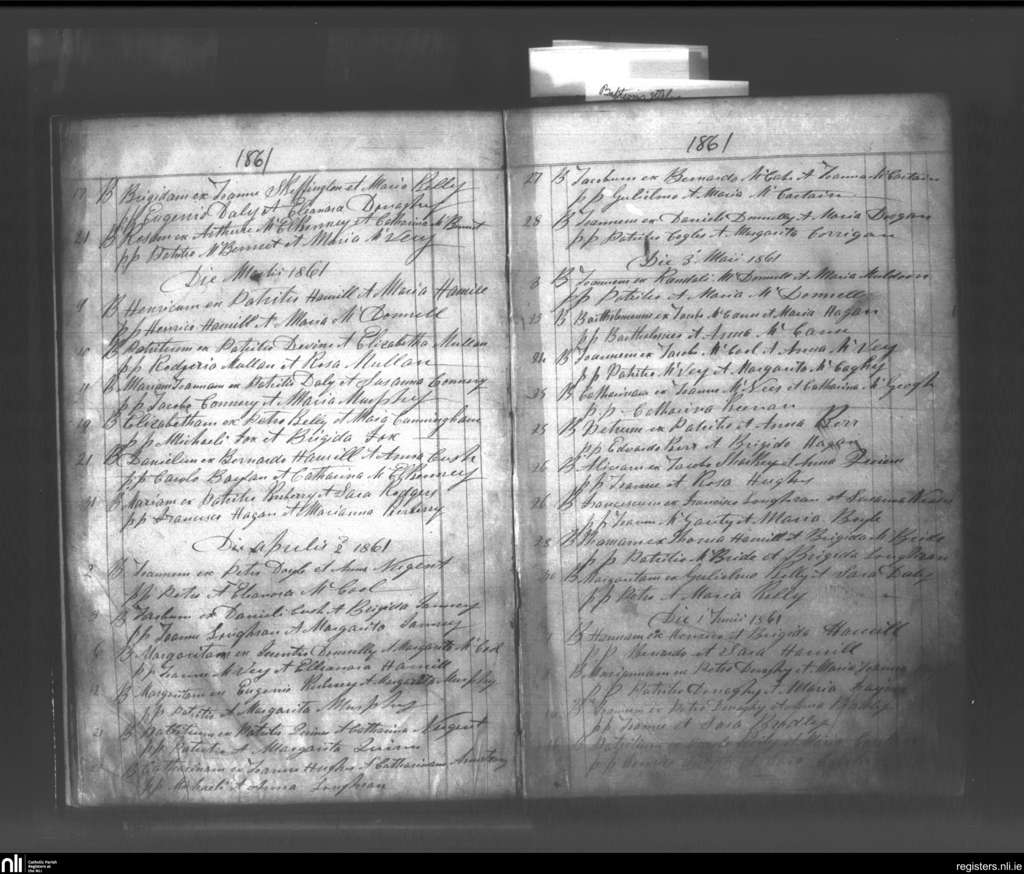 Baptisms
1861
17 B Brigidam ex Joanne Skeffington et Maria Kelly
pp Eugenio Daly et Eleanora Donaghy
21 B Rosam ex Arthuro McElhenney et Catharina McBennet
pp Patritio McBennet et Maria McVeey
Die Martii 1861
9 B Henricum ex Patritio Hamill et Maria Hamill
pp Henrico Hamill et Maria McDonnell
10 B Patritium ex Patritio Devine et Elizabetha Mullan
pp Rodgerio Mullan et Rosa Mullan
11 B Mariam Joannam ex Patritio Daly et Susanna Connery
pp Jacobo Connery et Maria Murphy
19 B Elizabetham ex Petro Kelly et Maria Cunningham
pp Michaeli Fox et Brigida Fox
21 B Danielem ex Bernardo Hamill et Anna Cush
pp Carolo Boylan et Catharina McElhenney
31 B Mariam ex Patritio et Sara Rodgers
pp Francisco Hagan et Marianna
Die Aprilis 2 1861
2 B Joannem ex Petro Doyle et Anna Nugent
pp Petro et Eleanora McCool
B ex Danieli Cush et Brigida
pp Joanne Loughran et Margarita
6 B Margaritam ex Donnelly et Margarita McCool
pp Joanne McVey et Elleanora Hamill
12 B Margaritam ex Eugenio et Margarita Murphy
pp Patritio et Margarita Murphy
21 B Patritium ex Patritio Quinn et Catharina Nugent
pp Patritio et Margarita Quinn
B Catharinam ex Joanne Hughs et Catharinam Armstrong
pp Michaeli et Anna Loughran
1861
27 B Jacobum ex Bernardo McCabe et Joanna McCartain
pp Gulielmo et Maria McCartain
28 B Joannem ex Danielo Donnelly et Maria Drogan
pp Patritio Cogles et Margarita Corrigan
Die 3 Maii 1861
3 B Joannem ex Randali McDonnell et Maria Muldoon
pp Patritio et Maria McDonnell
B Bartholomeum ex Jacobo McCann et Maria Hagan
pp Bartholomeo et Anna McCann
24 B Joannem ex Jacobo McCool et Anna McVey
pp Patritio McVey et Margarita McCaghy
25 B Catharinam ex Joanne McVees et Catharina McGeogh
pp Catharina Keenan
25 B Petrum ex Patritio et Anna Kerr
pp Edwardo Kerr et Brigida Hagan
26 B ex Jacobo Sharkey et Anna Devine
pp Joanne et Rosa Hughs
26 B Franciscum ex Francisco Loughran et Susanna
pp Joanne McGarity et Maria Boyle
28 B ex Thoma Hamill et Brigida McBride
pp Patritio McBride et Brigida Loughran
30 B Margaritam ex Gulielmo Kelly et Sara Daly
pp Petro et Maria Kelly
Die 1 Junii 1861
1 B Hannam ex Henrico et Brigida Hamill
pp Bernardo et Sara Hamill
B Mariannam ex Petro Donaghy et Maria Joanna
pp Patritio Donaghy et Maria
B Joannem ex Petro Donaghy et Anna Bradly
pp Joanne et Sara Bradly
B Patritium ex
pp
nli
Catholic Parish
Registers at
the NLI
registers.nli.ie